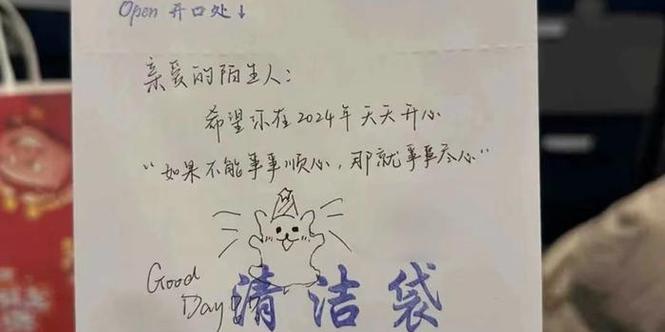 Open 开口处↓
亲爱的陌生人：
希望你在2024年天天开心
“如果不能事事顺心，那就事事尽心”
Good
Day
清洁袋